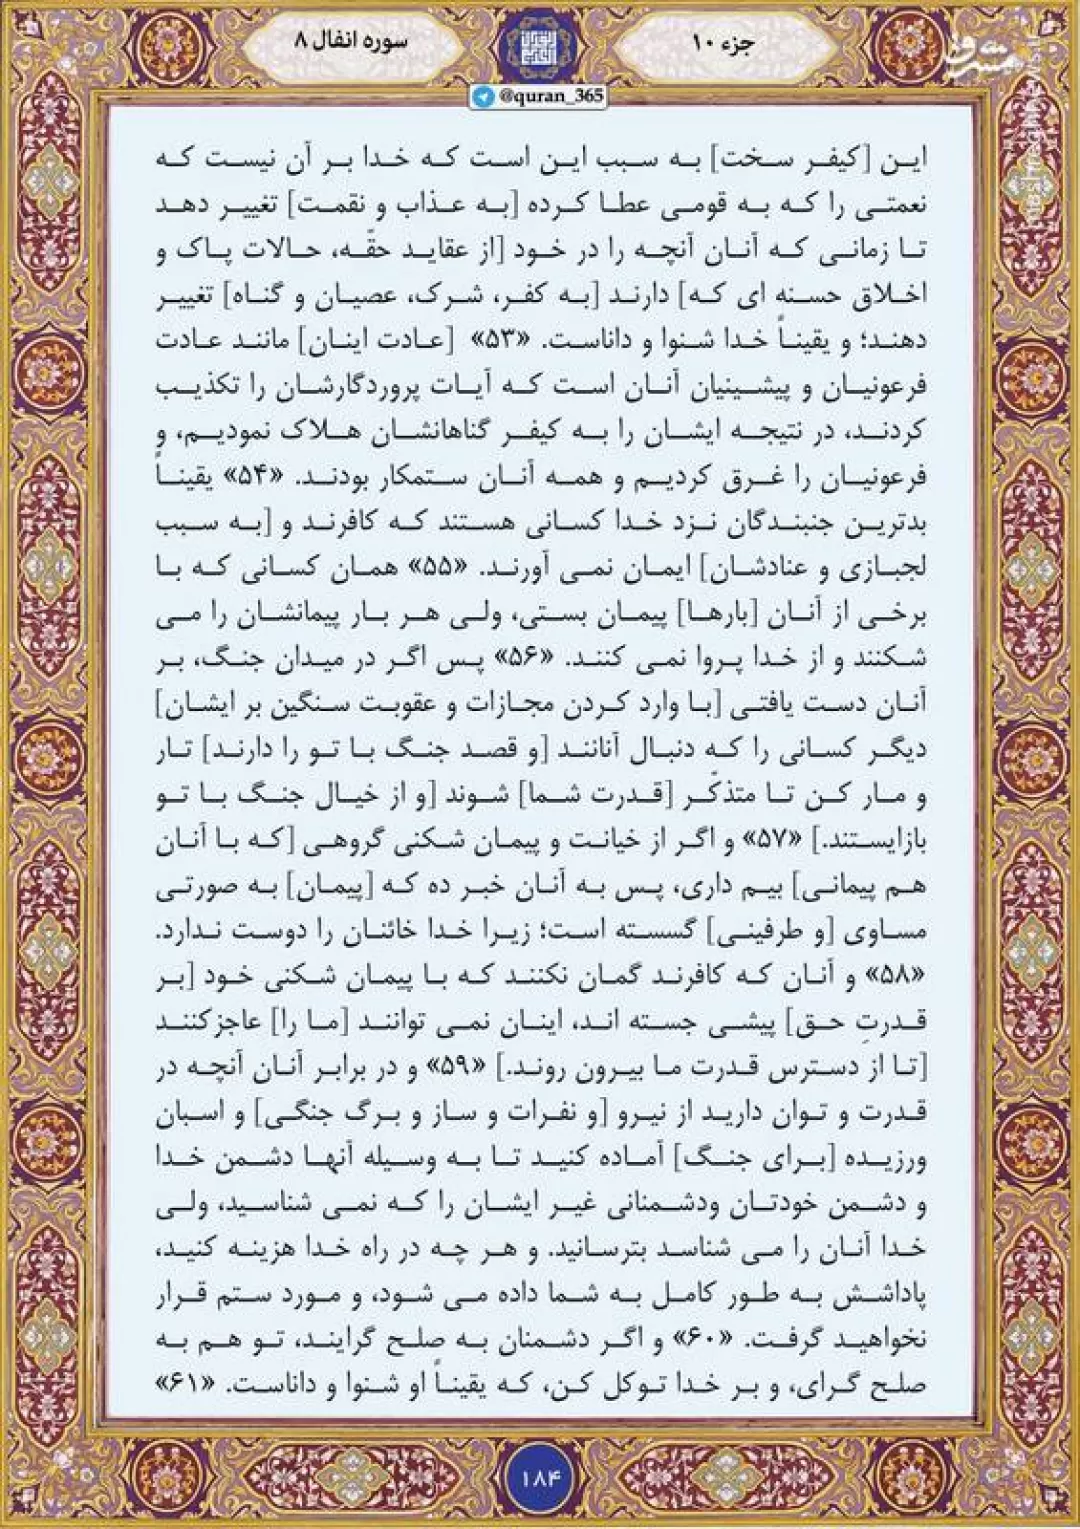 جزء ۱۰
سوره انفال ۸
مشرق
@quran_365
این [کیفر سخت] به سبب این است که خدا بر آن نیست که
نعمتی را که به قومی عطا کرده [به عذاب و نقمت] تغییر دهد
تا زمانی که آنان آنچه را در خود [از عقاید حقّه، حالات پاک و
اخلاق حسنه ای که] دارند [به کفر، شرک، عصیان و گناه] تغییر
دهند؛ و یقیناً خدا شنوا و داناست. «۵۳» [عادت اینان] مانند عادت
فرعونیان و پیشینیان آنان است که آیات پروردگارشان را تکذیب
کردند، در نتیجه ایشان را به کیفر گناهانشان هلاک نمودیم، و
فرعونیان را غرق کردیم و همه آنان ستمکار بودند. «۵۴» یقیناً
بدترین جنبندگان نزد خدا کسانی هستند که کافرند و [به سبب
لجبازی و عنادشان] ایمان نمی آورند. «۵۵» همان کسانی که با
برخی از آنان [بارها] پیمان بستی، ولی هر بار پیمانشان را می
شکنند و از خدا پروا نمی کنند. «۵۶» پس اگر در میدان جنگ، بر
آنان دست یافتی [با وارد کردن مجازات و عقوبت سنگین بر ایشان]
دیگر کسانی را که دنبال آنانند [و قصد جنگ با تو را دارند] تار
و مار کن تا متذکّر [قدرت شما] شوند [و از خیال جنگ با تو
بازایستند.] «۵۷» و اگر از خیانت و پیمان شکنی گروهی [که با آنان
هم پیمانی] بیم داری، پس به آنان خبر ده که [پیمان] به صورتی
مساوی [و طرفینی] گسسته است؛ زیرا خدا خائنان را دوست ندارد.
«۵۸» و آنان که کافرند گمان نکنند که با پیمان شکنی خود [بر
قدرتِ حق] پیشی جسته اند، اینان نمی توانند [ما را] عاجزکنند
[تا از دسترس قدرت ما بیرون روند.] «۵۹» و در برابر آنان آنچه در
قدرت و توان دارید از نیرو [و نفرات و ساز و برگ جنگی] و اسبان
ورزیده [برای جنگ] آماده کنید تا به وسیله آنها دشمن خدا
و دشمن خودتان ودشمنانی غیر ایشان را که نمی شناسید، ولی
خدا آنان را می شناسد بترسانید. و هر چه در راه خدا هزینه کنید،
پاداشش به طور کامل به شما داده می شود، و مورد ستم قرار
نخواهید گرفت. «۶۰» و اگر دشمنان به صلح گرایند، تو هم به
صلح گرای، و بر خدا توکل کن، که یقیناً او شنوا و داناست. «۶۱»
۱۸۴